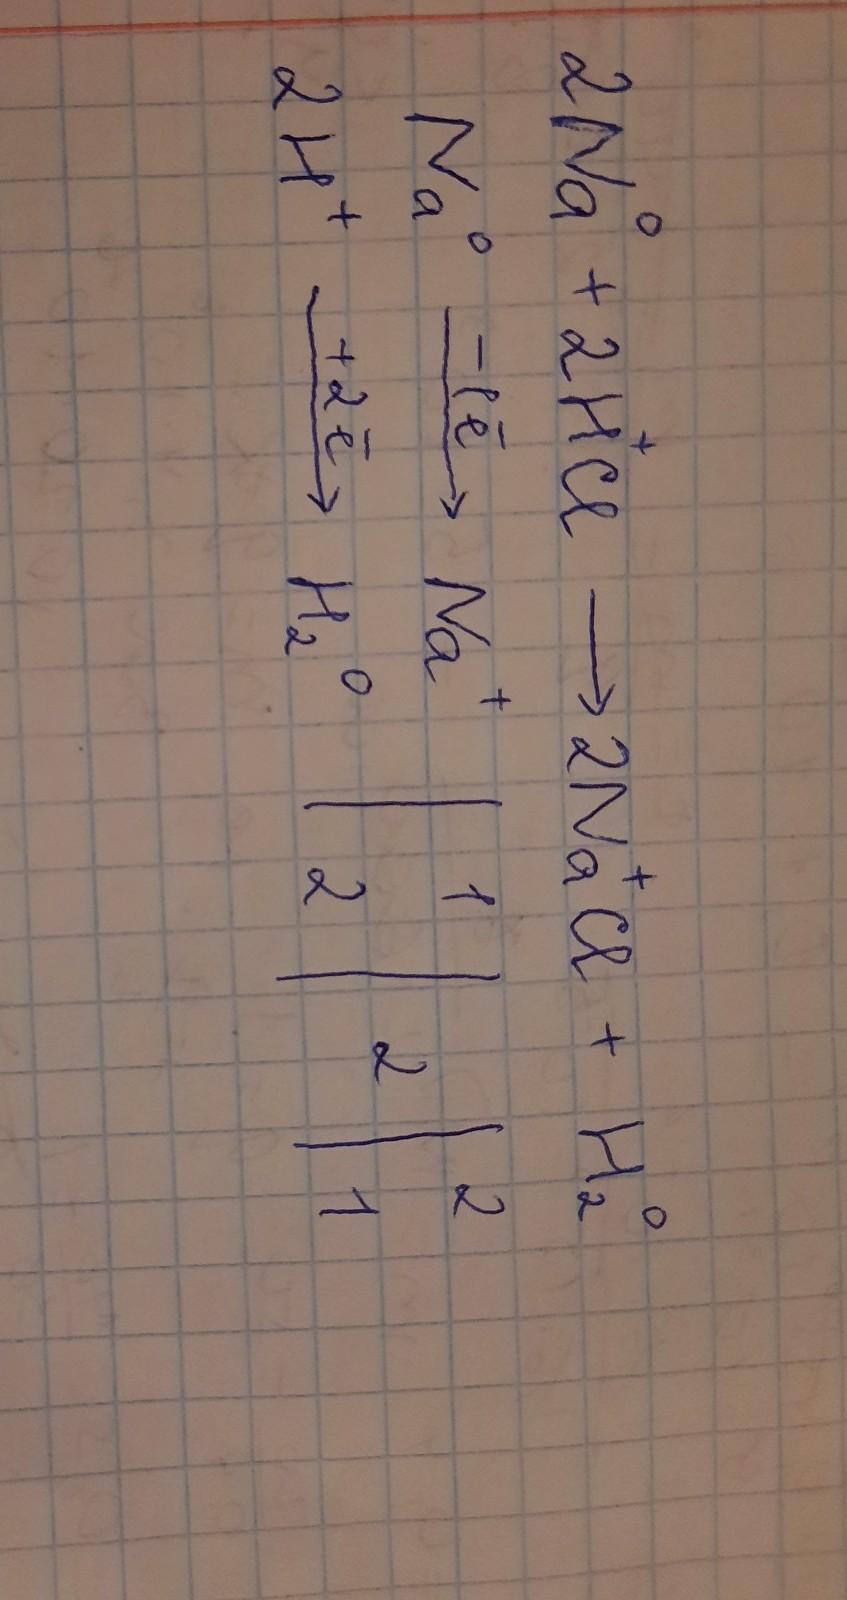 2Na⁰ + 2H⁺Cl → 2Na⁺Cl + H₂⁰
Na⁰ —−1ē→ Na⁺ | 1 | 2 | 2
2H⁺ —+2ē→ H₂⁰ | 2 | | 1